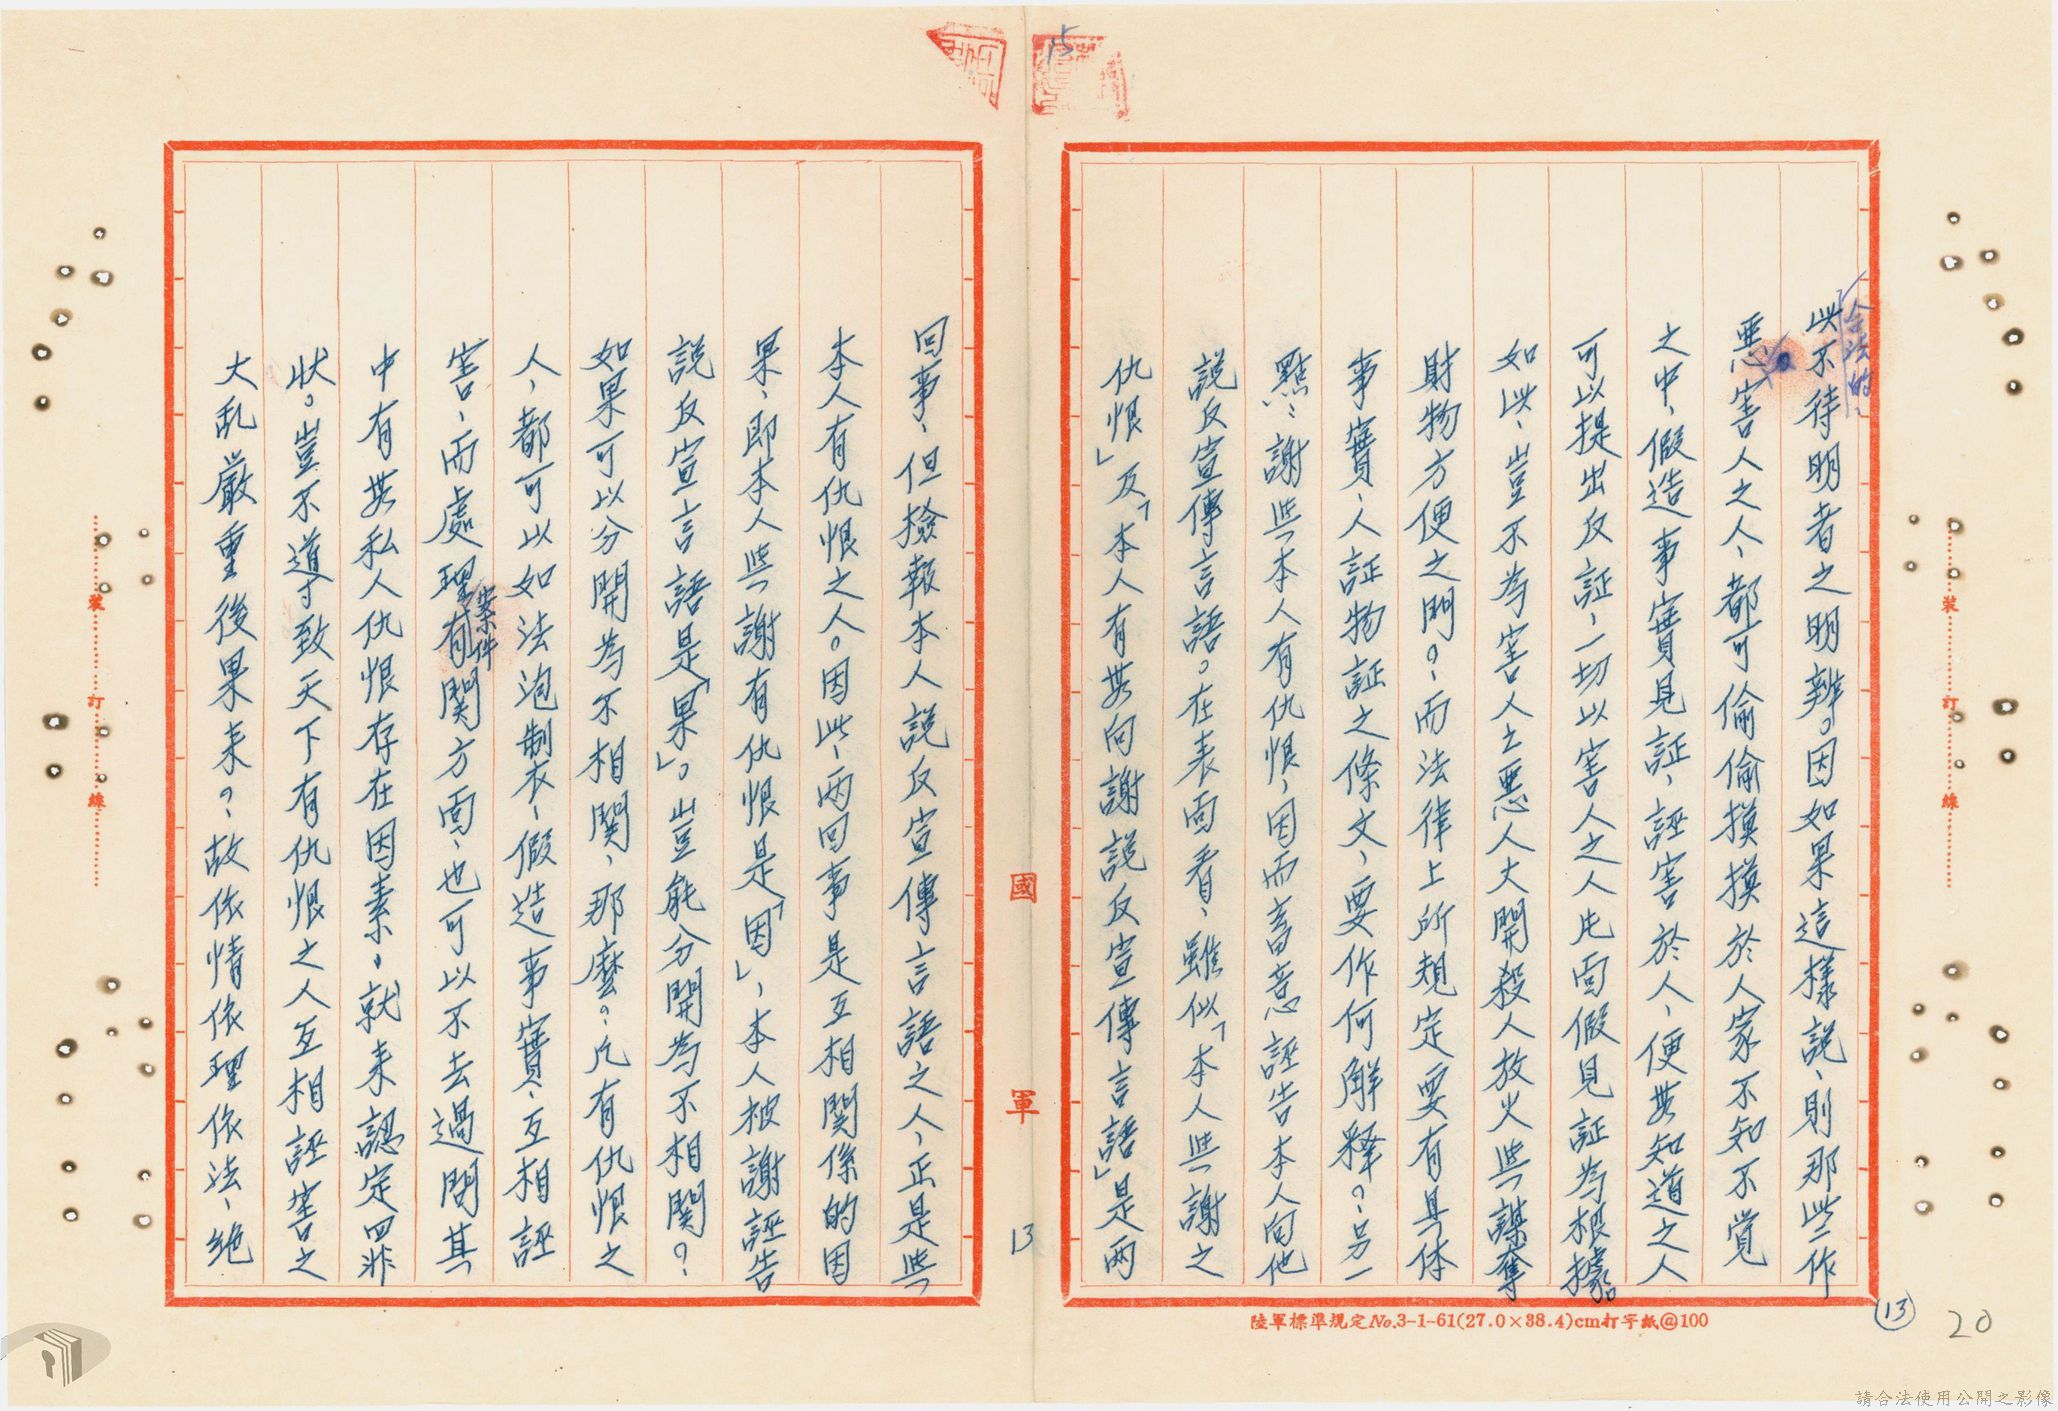 15
合法的
此不待明者之明辨。因如果這樣說、則那些作
惡害人之人、都可偷偷摸摸於人家不知不覺
之中、假造事實見証、誣害於人、便無知道之人
可以提出反証、一切以害人之人片面假見証為根據
如此、豈不為害人之惡人大開殺人放火與謀奪
財物方便之門？而法律上所規定要有具体
事實、人証物証之條文、要作何解释？另一
點：謝與本人有仇恨、因而蓄意誣告本人向他
說反宣傳言語。在表面看、雖似「本人與謝之
仇恨」及「本人有無向謝說反宣傳言語」是兩
回事、但撿報本人說反宣傳言語之人、正是與
本人有仇恨之人。因此、兩回事是互相関係的因
果、即本人與謝有仇恨是「因」、本人被謝誣告
說反宣言語是「果」。豈能分開為不相関？
如果可以分開為不相関、那麼？凡有仇恨之
人、都可以如法泡制衣、假造事實、互相誣
害、而處理有関方面、也可以不去過問其
案件
中有無私人仇恨存在因素、就来認定罪
状。豈不道寸致天下有仇恨之人互相誣害之
大乱嚴重後果来？故依情依理依法、絶
國軍
13
裝訂線
裝訂線
陸軍標準規定No.3-1-61(27.0×38.4)cm打字紙@100
13
20
請合法使用公開之影像